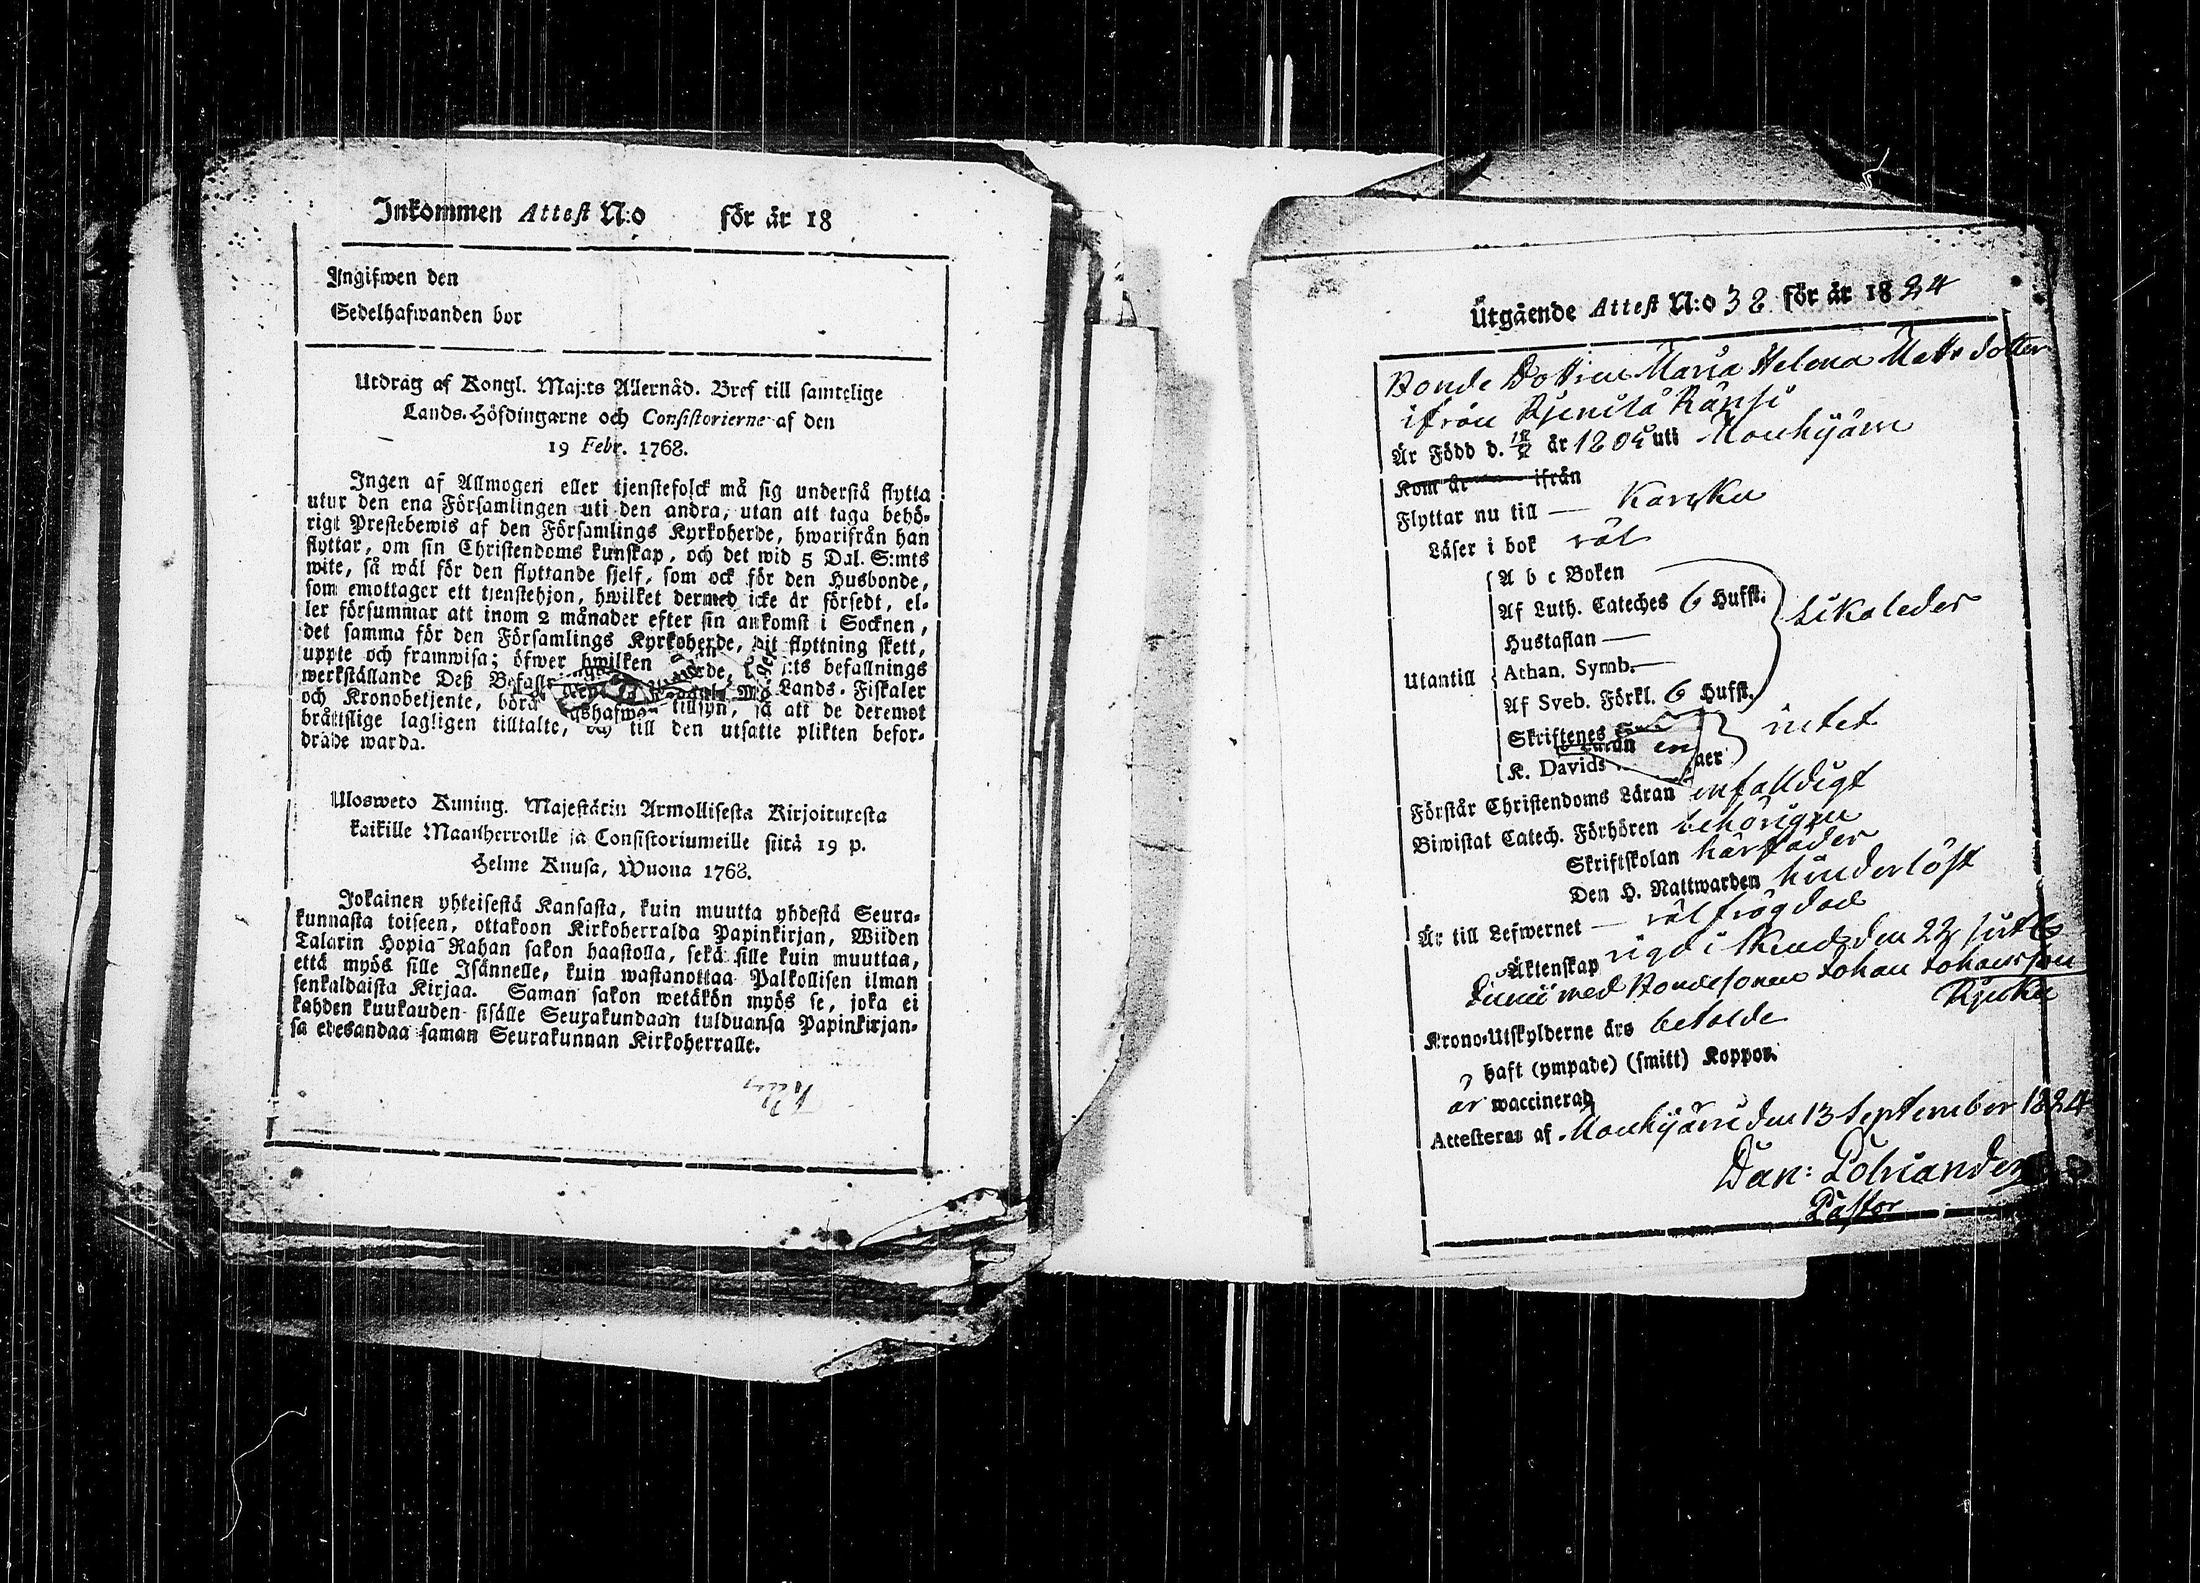 Inkommen Attest N:o för år 18
Ingifwen den
Sedelhafwanden bor
Utdrag af Kongl. Maj:ts Allernåd. Bref till samtelige
Lands-Höfdingarne och Consistorierne af den
19 Febr. 1768.
Ingen af Allmogen eller tjenstefolck må sig understå flytta
utur den ena Församlingen uti den andra, utan att taga behö-
rigt Prestebewis af den Församlings Kyrkoherde, hwarifrån han
flyttar, om sin Christendoms kunskap, och det wid 5 Dal. S:mts
wite, så wäl för den flyttande sjelf, som ock för den Husbonde,
som emottager ett tjenstehjon, hwilket dermed icke är försedt, el-
ler försummar att inom 2 månader efter sin ankomst i Socknen,
det samma för den Församlings Kyrkoherde, dit flyttning skett,
uppte och framwisa; öfwer hwilken befallnings
werkställande Deß Lands-Fiskaler
och Kronobetjente, böra tillsyn, så att de deremot
brättslige lagligen tilltalte, och till den utsatte plikten befor-
drade warda.
Ulosweto Kuning. Majestätin Armollisesta Kirjoituxesta
kaikille Maanherroille ja Consistoriumeille siitä 19 p.
Helme Kuusa, Wuona 1768.
Jokainen yhteisestä Kansasta, kuin muutta yhdestä Seura-
kunnasta toiseen, ottakoon Kirkoherralda Papinkirjan, Wiiden
Talarin Hopia Rahan sakon haastolla, sekä sille kuin muuttaa,
että myös sille Isännelle, kuin wastanottaa Palkollisen ilman
senkaldaista Kirjaa. Saman sakon wetäkön myös se, joka ei
kahden kuukauden sisälle Seurakundaan tulduansa Papinkirjan-
sa edesandaa saman Seurakunnan Kirkoherralle.
Utgående Attest N:o 38 för år 1824
Bonde Dottren Maria Helena Matts dotter
ifrån Kjenilä
Är Född d. år 1805 uti Mouhijärvi
Kom år ifrån
Flyttar nu till — Karkku
Läser i bok väl
Utantill
A b c Boken
Af Luth. Cateches 6 Hufst.
Hustaflan —
Athan. Symb. —
Af Sveb. Förkl. 6 Hufst.
Skriftenes
K. Davids
intet
Förstår Christendoms Läran enfalldigt
Biwistat Catech. Förhören behörigen
Skriftskolan
Den H. Nattwarden hinderlöst
Är till Lefwernet — väl frägdad
Äktenskap vigd i den 22
med Bondesonen Johan Johansson
Krono-Utskylderne äro betalde
haft (ympade) (smitt) Koppor.
är waccinerad
Attesteras af Mouhijärvi den 13 September 1824
Dan: Polviander
Pastor